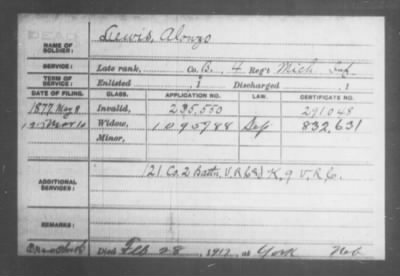 DEAD
NAME OF SOLDIER: Lewis, Alonzo
SERVICE: Late rank, Co. B, 4 Reg't Mich Inf.
TERM OF SERVICE: Enlisted , 1 Discharged , 1
DATE OF FILING. CLASS. APPLICATION NO. LAW. CERTIFICATE NO.
1877 May 9 Invalid, 235,550 291048
Mar 10 Widow, 1095788 Sep 832,631
Minor,
ADDITIONAL SERVICES: 21 Co. 2 Batt'n, V.R.C. & K, 9 V.R.C.
REMARKS:
Died Feb 28, 1917, at York Neb